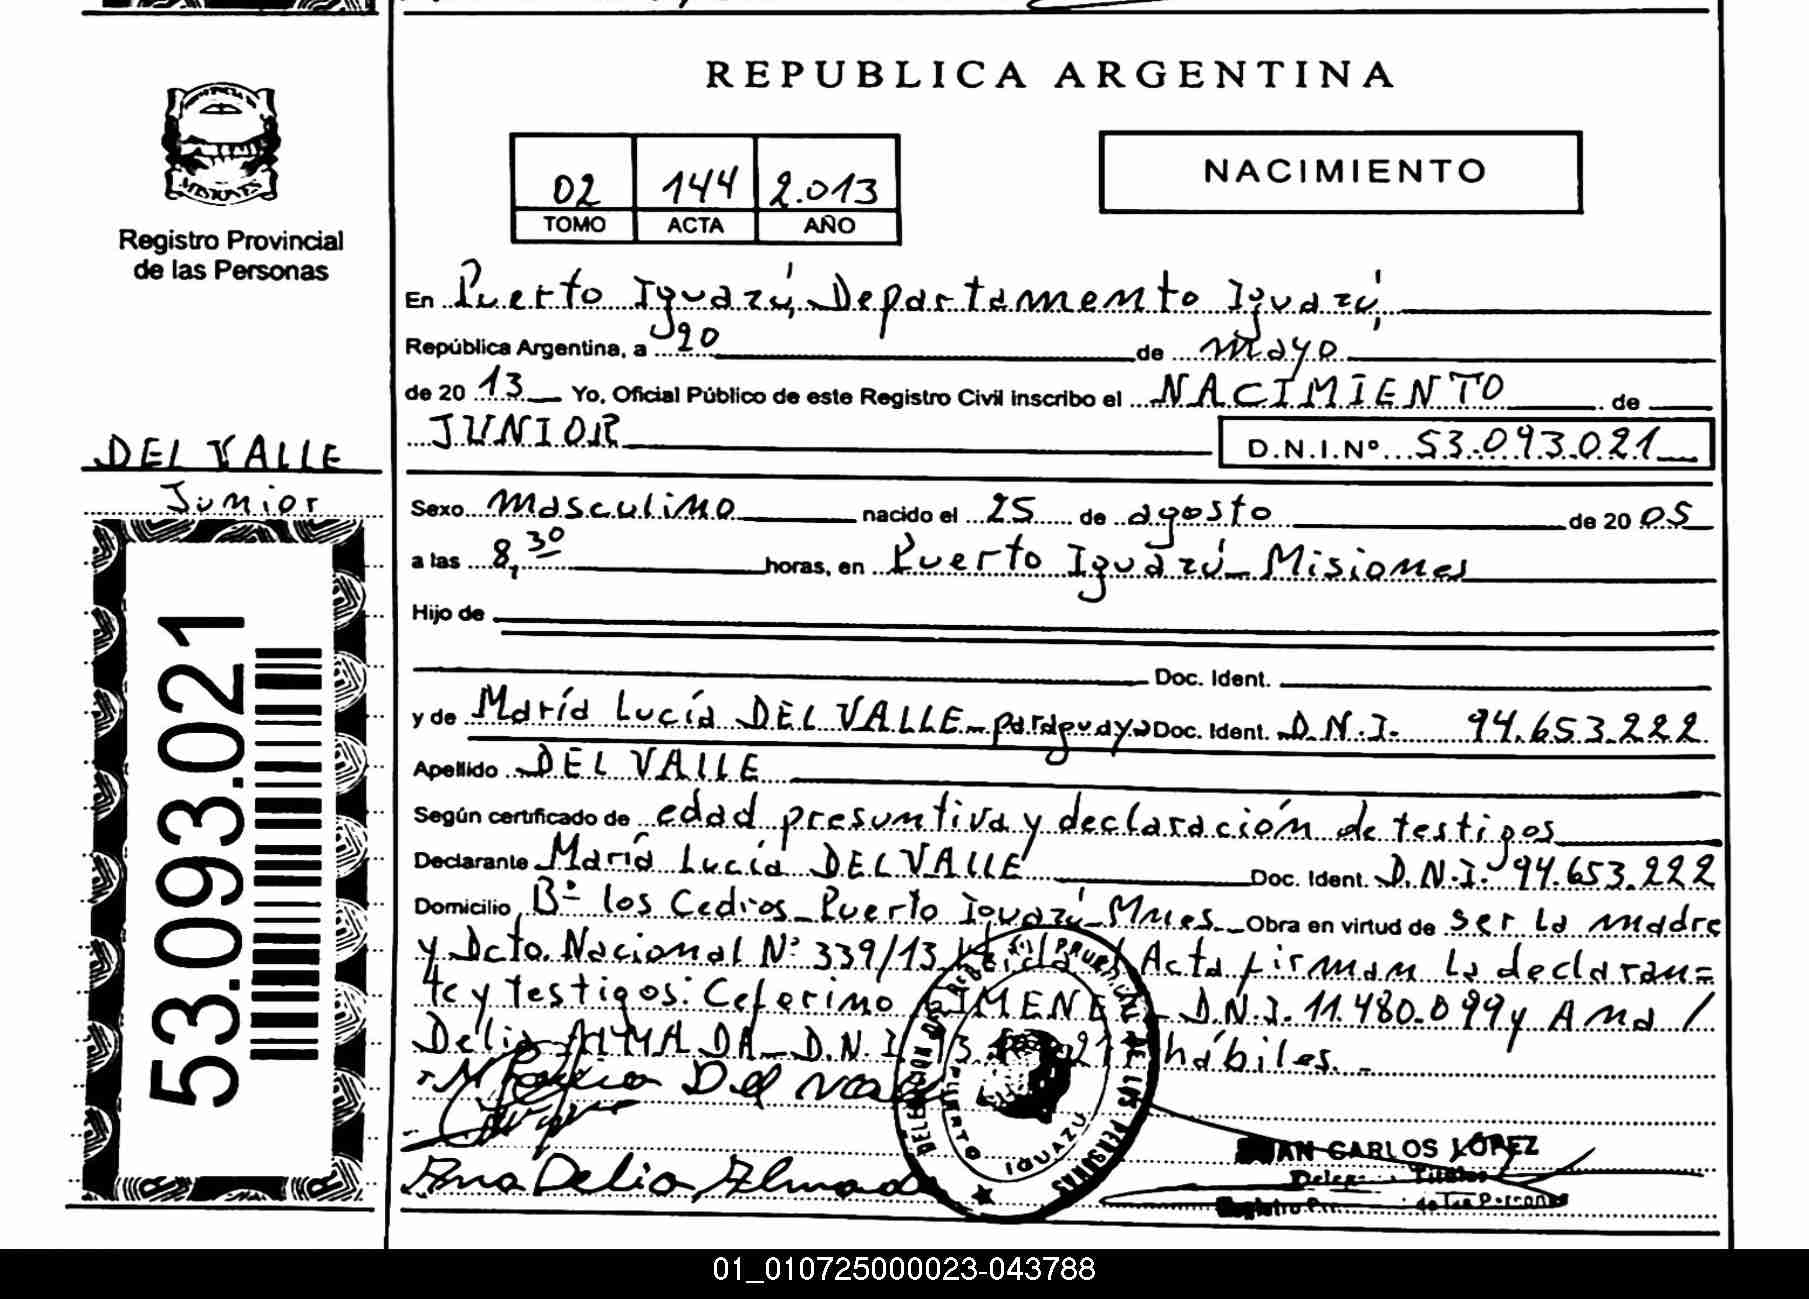 REPUBLICA ARGENTINA
PROVINCIA DE
MISIONES
Registro Provincial
de las Personas
02 144 2.013
TOMO ACTA AÑO
NACIMIENTO
En Puerto Iguazú, Departamento Iguazú,
República Argentina, a 20 de mayo
de 20 13 Yo, Oficial Público de este Registro Civil inscribo el NACIMIENTO de
JUNIOR D.N.I.Nº 53.093.021
DEL VALLE
Junior
53.093.021
Sexo masculino nacido el 25 de agosto de 20 05
a las 8,30 horas, en Puerto Iguazú - Misiones
Hijo de
Doc. Ident.
y de María Lucía DEL VALLE - paraguaya Doc. Ident. D.N.I. 94.653.222
Apellido DEL VALLE
Según certificado de edad presuntiva y declaración de testigos
Declarante María Lucía DEL VALLE Doc. Ident. D.N.I. 94.653.222
Domicilio Bº los Cedros - Puerto Iguazú - Mnes. Obra en virtud de ser la madre
y Dcto. Nacional Nº 339/13 Acta firman la declaran=
te y testigos: Ceferino GIMENEZ - D.N.I. 11.480.099 y Ana /
Delia ALMADA - D.N.I. hábiles. -
Del Valle
Ana Delia Almada
DELEGACION PUERTO IGUAZU DE LAS PERSONAS
JUAN CARLOS LÓPEZ
Titular
de las Personas
01_010725000023-043788